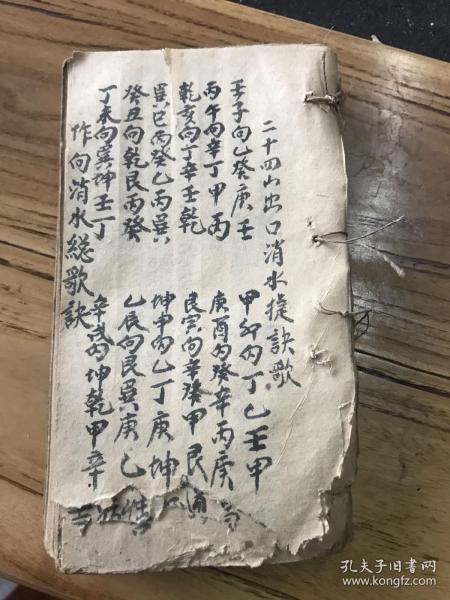 二十四山出口消水捷訣歌
壬子向乙癸庚壬
甲卯丙丁乙壬甲
丙午向辛丁甲丙
庚酉丙癸辛丙庚
乾亥向丁辛壬乾
艮寅向辛癸甲艮
巽巳丙癸乙丙巽
坤申丙乙丁庚坤
癸丑向乾艮丙癸
乙辰向艮巽庚乙
丁未向巽坤壬丁
辛戌丙坤乾甲辛
作向消水總歌訣
孔夫子旧书网
www.kongfz.com